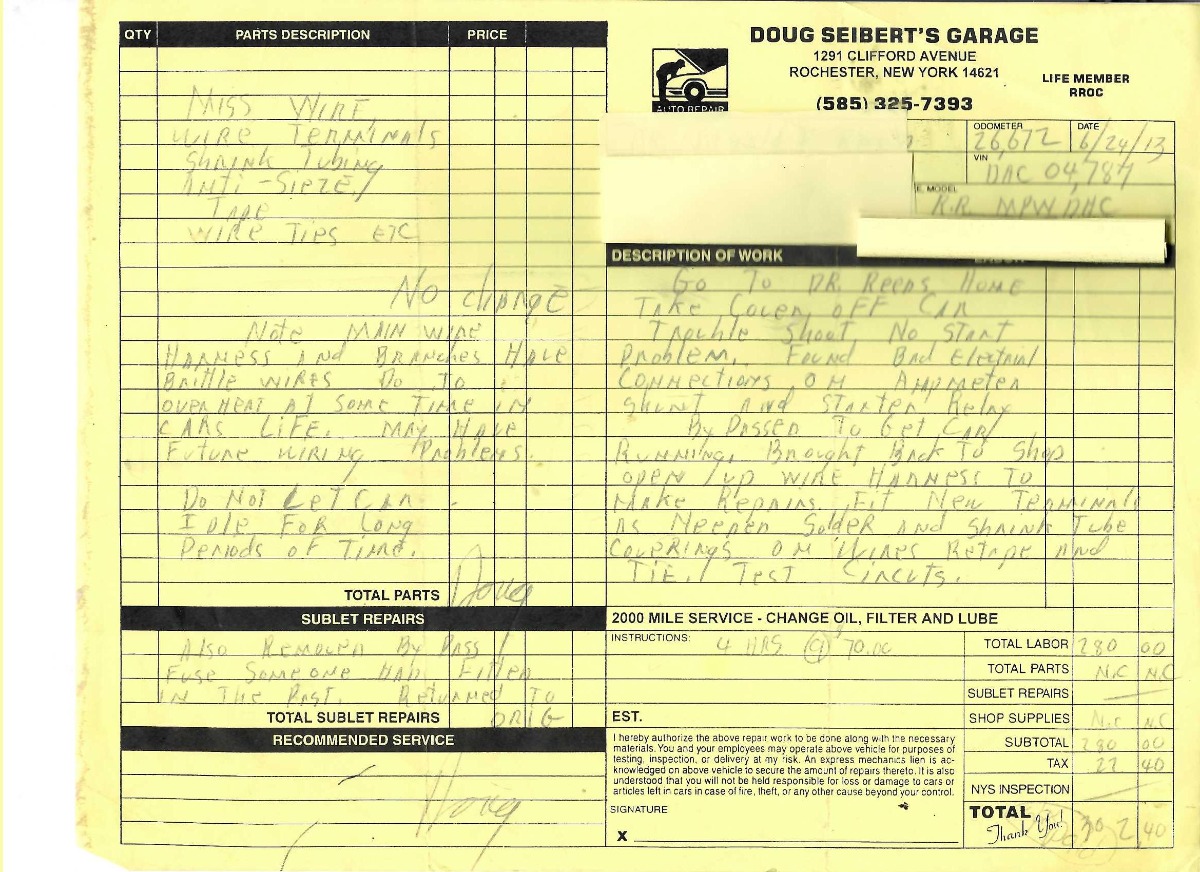 QTY PARTS DESCRIPTION PRICE
MISS WIRE,
WIRE TERMINALS
SHRINK TUBING
ANTI-SIEZE,
TAPE
WIRE TIES ETC
NO CHANGE
NOTE MAIN WIRE
HARNESS AND BRANCHES HAVE
BRITTLE WIRES DO TO
OVERHEAT AT SOME TIME IN
CARS LIFE. MAY HAVE
FUTURE WIRING PROBLEMS.
DO NOT LET CAR
IDLE FOR LONG
PERIODS OF TIME.
Doug
TOTAL PARTS
SUBLET REPAIRS
ALSO REMOVED BY PASS
FUSE SOMEONE HAD FITTED
IN THE PAST. RETURNED TO
ORIG
TOTAL SUBLET REPAIRS
RECOMMENDED SERVICE
Doug
AUTO REPAIR
DOUG SEIBERT'S GARAGE
1291 CLIFFORD AVENUE
ROCHESTER, NEW YORK 14621
(585) 325-7393
LIFE MEMBER
RROC
ODOMETER 26,672 DATE 6/24/13
VIN DAC 04,787
E. MODEL R.R. MPW DHC
DESCRIPTION OF WORK
GO TO DR. REEDS HOME
TAKE COVER OFF CAR
TROUBLE SHOOT NO START
PROBLEM. FOUND BAD ELECTRIAL
CONNECTIONS ON AMPMETER
SHUNT AND STARTER RELAY
BY PASSED TO GET CAR
RUNNING, BROUGHT BACK TO SHOP
OPEN UP WIRE HARNESS TO
MAKE REPAIRS. FIT NEW TERMINALS
AS NEEDED SOLDER AND SHRINK TUBE
COVERINGS ON WIRES RETAPE AND
TIE. TEST CIRCUTS.
2000 MILE SERVICE - CHANGE OIL, FILTER AND LUBE
INSTRUCTIONS: 4 HRS @ $70.00
EST.
I hereby authorize the above repair work to be done along with the necessary
materials. You and your employees may operate above vehicle for purposes of
testing, inspection, or delivery at my risk. An express mechanics lien is ac-
knowledged on above vehicle to secure the amount of repairs thereto. It is also
understood that you will not be held responsible for loss or damage to cars or
articles left in cars in case of fire, theft, or any other cause beyond your control.
SIGNATURE
X
TOTAL LABOR 280 00
TOTAL PARTS N.C N.C
SUBLET REPAIRS
SHOP SUPPLIES N.C N.C
SUBTOTAL 280 00
TAX 22 40
NYS INSPECTION
TOTAL 302.40
Thank You!